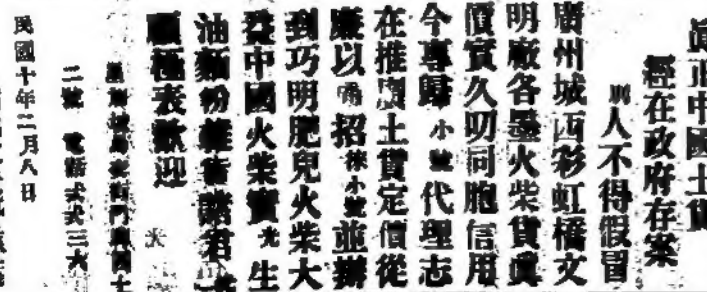 眞正中國土貨
經在政府存案
別人不得假冒
廣州城西彩虹橋文
明廠各火柴貨眞
價實久叨同胞信用
今專歸小號代理志
在推廣土貨定價從
廉以招徠小號並辦
到巧明肥兒火柴大
益中國火柴寶光生
油麵粉諸君
顧極表歡迎
門牌四十
二號 電話弍弍三六
民國十年二月八日